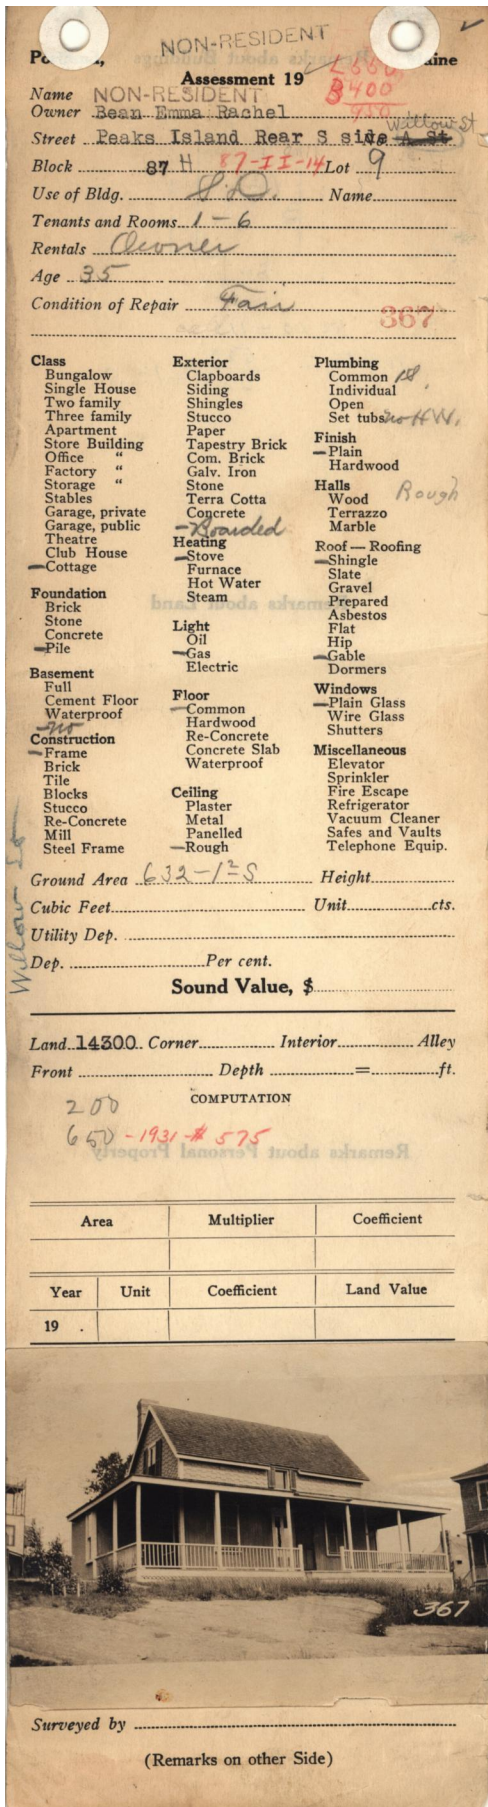 NON-RESIDENT
Assessment 19
B400
950
Name NON-RESIDENT
Owner Bean Emma Rachel
Willow St
Street Peaks Island Rear S side A St
Block 87 H 87-II-14 Lot 9
Use of Bldg. S.D. Name
Tenants and Rooms 1-6
Rentals Owner
Age 35
Condition of Repair Fair
367
Class
Bungalow
Single House
Two family
Three family
Apartment
Store Building
Office "
Factory "
Storage "
Stables
Garage, private
Garage, public
Theatre
Club House
Cottage
Foundation
Brick
Stone
Concrete
Pile
Basement
Full
Cement Floor
Waterproof
no
Construction
Frame
Brick
Tile
Blocks
Stucco
Re-Concrete
Mill
Steel Frame
Exterior
Clapboards
Siding
Shingles
Stucco
Paper
Tapestry Brick
Com. Brick
Galv. Iron
Stone
Terra Cotta
Concrete
Boarded
Heating
Stove
Furnace
Hot Water
Steam
Light
Oil
Gas
Electric
Floor
Common
Hardwood
Re-Concrete
Concrete Slab
Waterproof
Ceiling
Plaster
Metal
Panelled
Rough
Plumbing
Common
Individual
Open
Set tubs no H.W.
Finish
Plain
Hardwood
Halls
Wood Rough
Terrazzo
Marble
Roof — Roofing
Shingle
Slate
Gravel
Prepared
Asbestos
Flat
Hip
Gable
Dormers
Windows
Plain Glass
Wire Glass
Shutters
Miscellaneous
Elevator
Sprinkler
Fire Escape
Refrigerator
Vacuum Cleaner
Safes and Vaults
Telephone Equip.
Willow
Ground Area 632-1½S Height
Cubic Feet Unit cts.
Utility Dep.
Dep. Per cent.
Sound Value, $
Land 14300 Corner Interior Alley
Front Depth = ft.
COMPUTATION
200
650 - 1931 - $575
Remarks about Personal Property
Area Multiplier Coefficient
Year Unit Coefficient Land Value
19 .
367
Surveyed by
(Remarks on other Side)